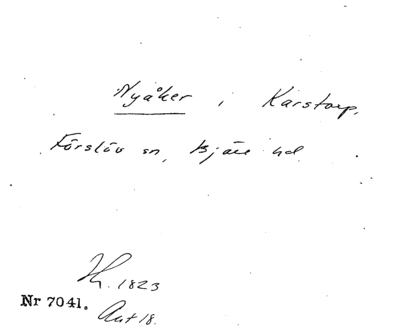 Nyåker, Karstorp,
Förslöv sn, Bjäre hd
H. 1823
Nr 7041. Akt 18.